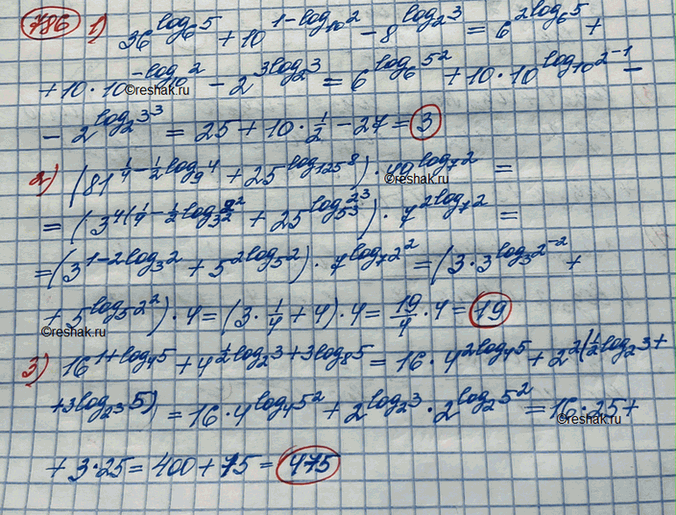 786 1) 36^{log_6 5} + 10^{1-log_{10} 2} - 8^{log_2 3} = 6^{2log_6 5} +
+ 10·10^{-log_{10} 2} - 2^{3log_2 3} = 6^{log_6 5^2} + 10·10^{log_{10} 2^{-1}} -
©reshak.ru
- 2^{log_2 3^3} = 25 + 10·\frac{1}{2} - 27 = 3
2) (81^{\frac{1}{4}-\frac{1}{2}log_9 4} + 25^{log_{125} 8})·49^{log_7 2} =
©reshak.ru
= (3^{4(\frac{1}{4}-\frac{1}{2}log_{3^2} 2^2} + 25^{log_{5^3} 2^3})·7^{2log_7 2} =
= (3^{1-2log_3 2} + 5^{2log_5 2})·7^{log_7 2^2} = (3·3^{log_3 2^{-2}} +
+ 5^{log_5 2^2})·4 = (3·\frac{1}{4} + 4)·4 = \frac{19}{4}·4 = 19
©reshak.ru
3) 16^{1+log_4 5} + 4^{\frac{1}{2}log_2 3+3log_8 5} = 16·4^{2log_4 5} + 2^{2(\frac{1}{2}log_2 3+
+3log_{2^3} 5)} = 16·4^{log_4 5^2} + 2^{log_2 3}·2^{log_2 5^2} = 16·25 +
©reshak.ru
+ 3·25 = 400 + 75 = 475